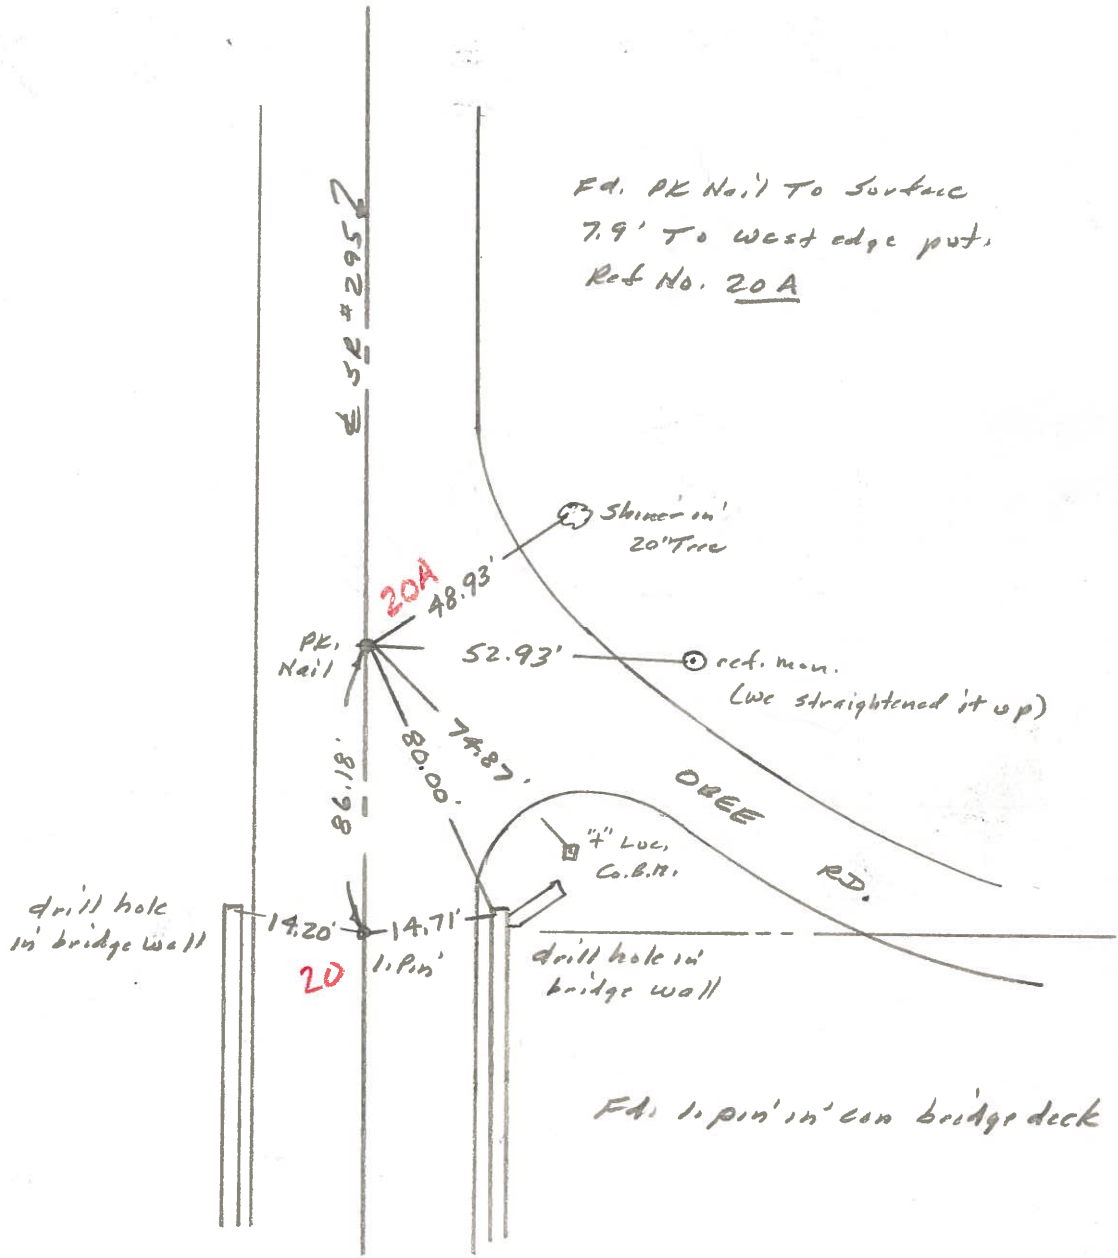 Fd. PK Nail To Surface
7.9' To west edge pvt.
Ref No. 20 A
℄ SR #295
Shiner in
20" Tree
20A
48.93'
PK.
Nail
52.93'
ref. mon.
(we straightened it up)
74.87'
80.00'
86.18'
OBEE
RD.
"+" Loc.
Co.B.M.
drill hole
in bridge wall
14.20'
14.71'
20
I.Pin
drill hole in
bridge wall
Fd. I.pin in con bridge deck